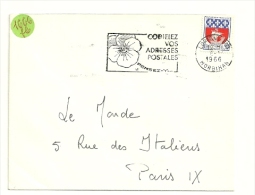 1966
CODIFIEZ
VOS
ADRESSES
POSTALES
1966
MORBIHAN
Le Monde
5 Rue des Italiens
Paris IX